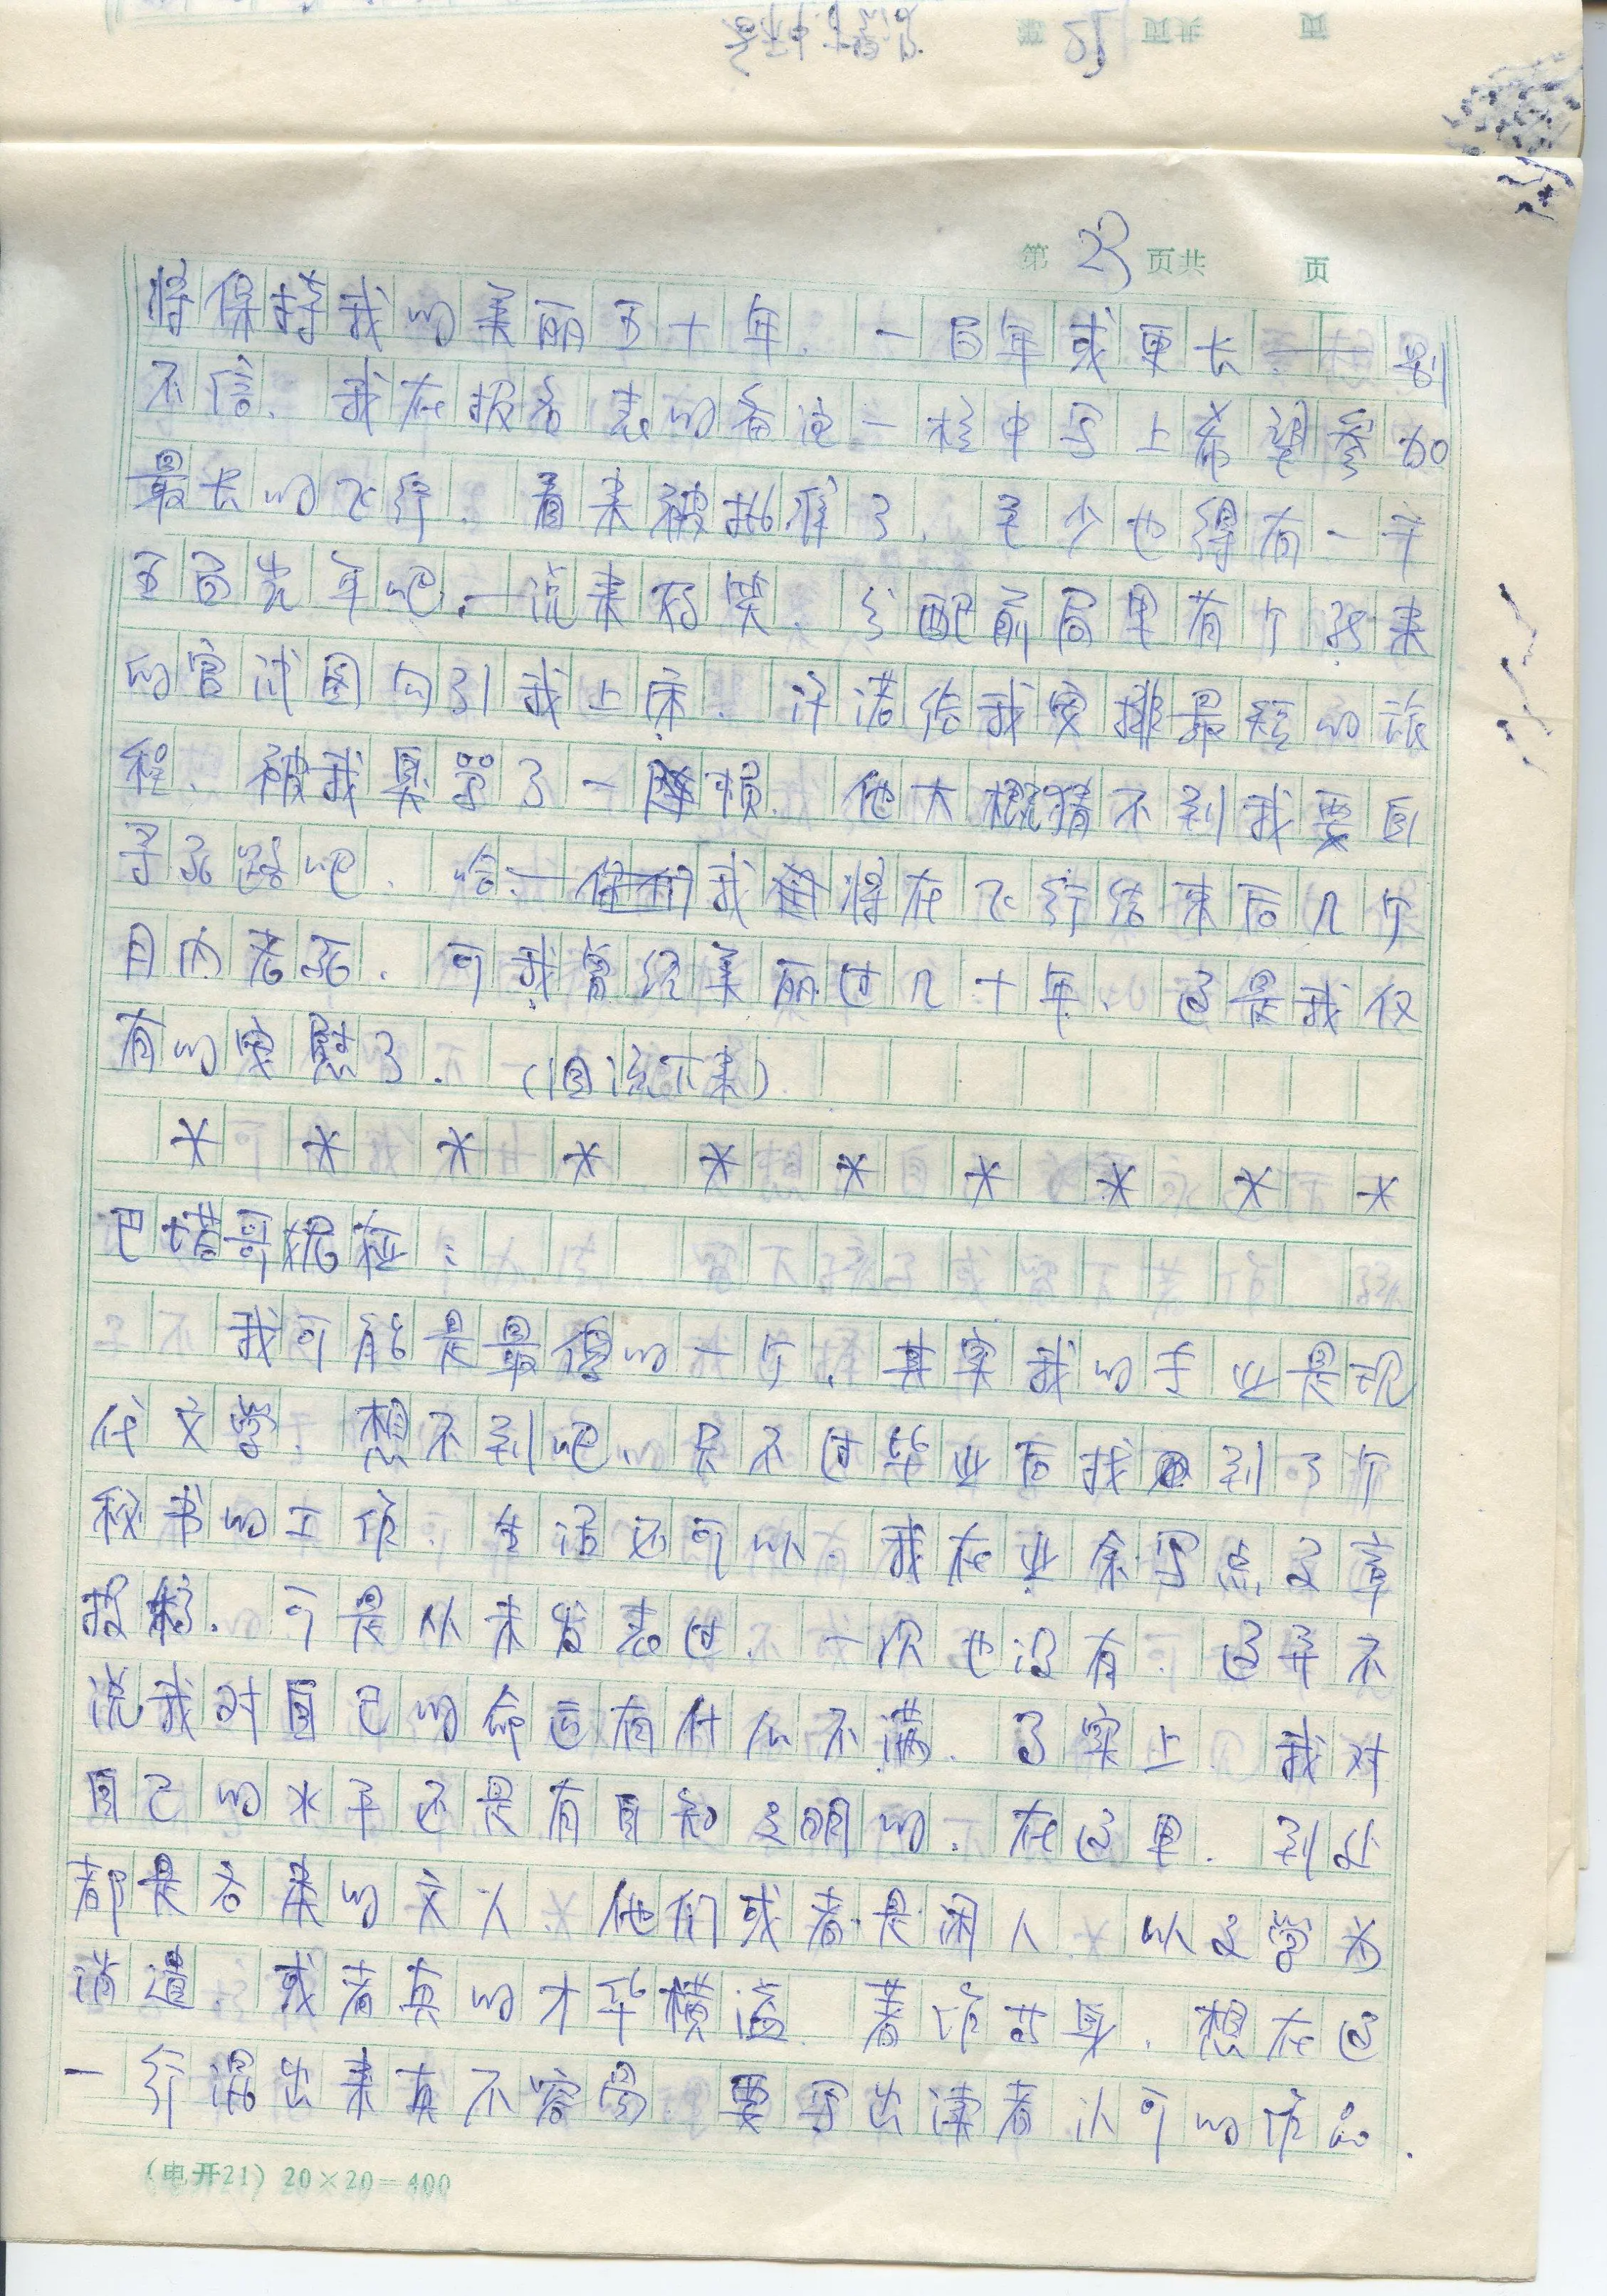 第 23 页共 页
将保持我的美丽五十年、一百年或更长.——别
不信、我在报名表的备注一栏中写上希望参加
最长的飞行、看来被批准了、至少也得有一千
五百光年吧.——说来好笑、分配前局里有个
的官试图勾引我上床、许诺给我安排最短的旅
程、被我臭骂了一顿、他大概猜不到我要自
寻死路吧、哈——我将在飞行结束后几个
月内老死、可我曾经美丽过几十年、这是我仅
有的安慰了.(泣下来)
* * * * * * * * * *
巴塔哥:
我可能是最傻的一个、其实我的专业是现
代文学、想不到吧、只不过毕业后找到了个
秘书的工作、生活还可以、我在业余写点文章
投稿、可是从未发表过、一次也没有、这并不
说我对自己的命运有什么不满、事实上、我对
自己的水平还是有自知之明的、在这里、到处
都是各类的文人、他们或者是闲人、以文学为
消遣、或者真的才华横溢、著作等身、想在这
一行混出来真不容易、要写出读者认可的作品、
(电开21) 20×20=400